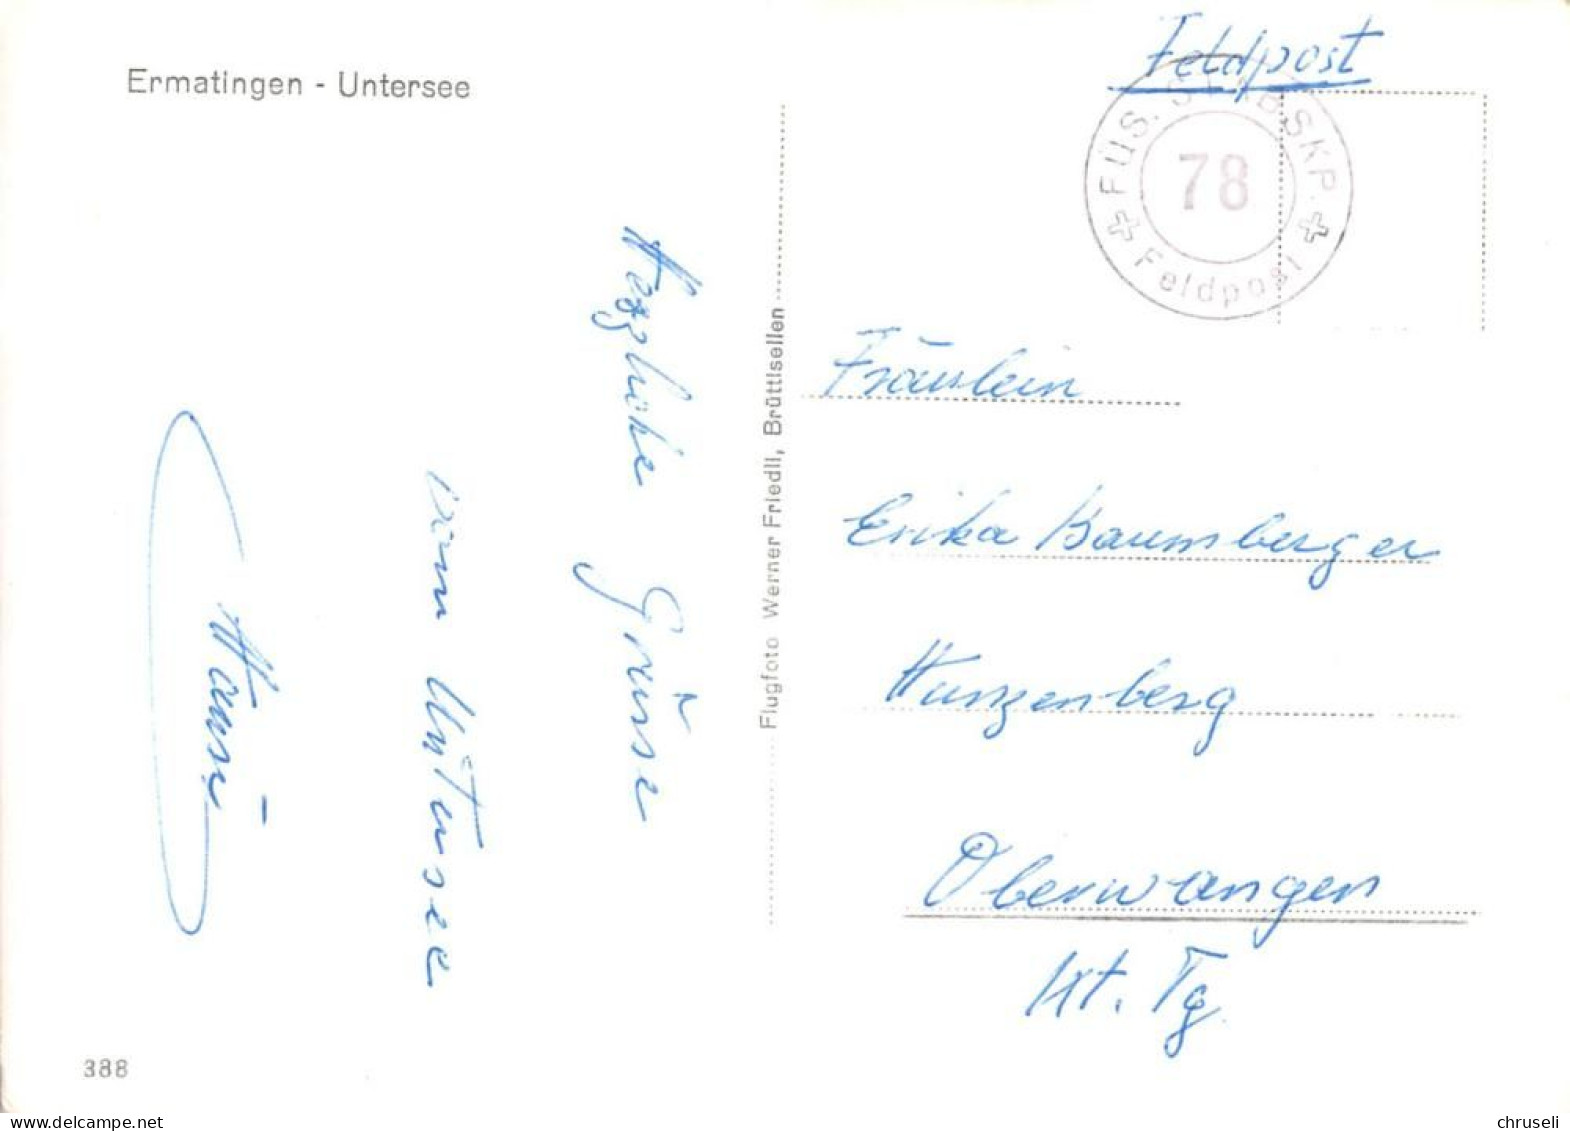 Ermatingen - Untersee
Feldpost
FÜS. STABSKP.
78
Feldpost
Herzliche Grüsse
vom Untersee
Hansi
Flugfoto Werner Friedli, Brüttisellen
Fräulein
Erika Baumberger
Hunzenberg
Oberwangen
Kt. Tg
388
delcampe.net
chruseli